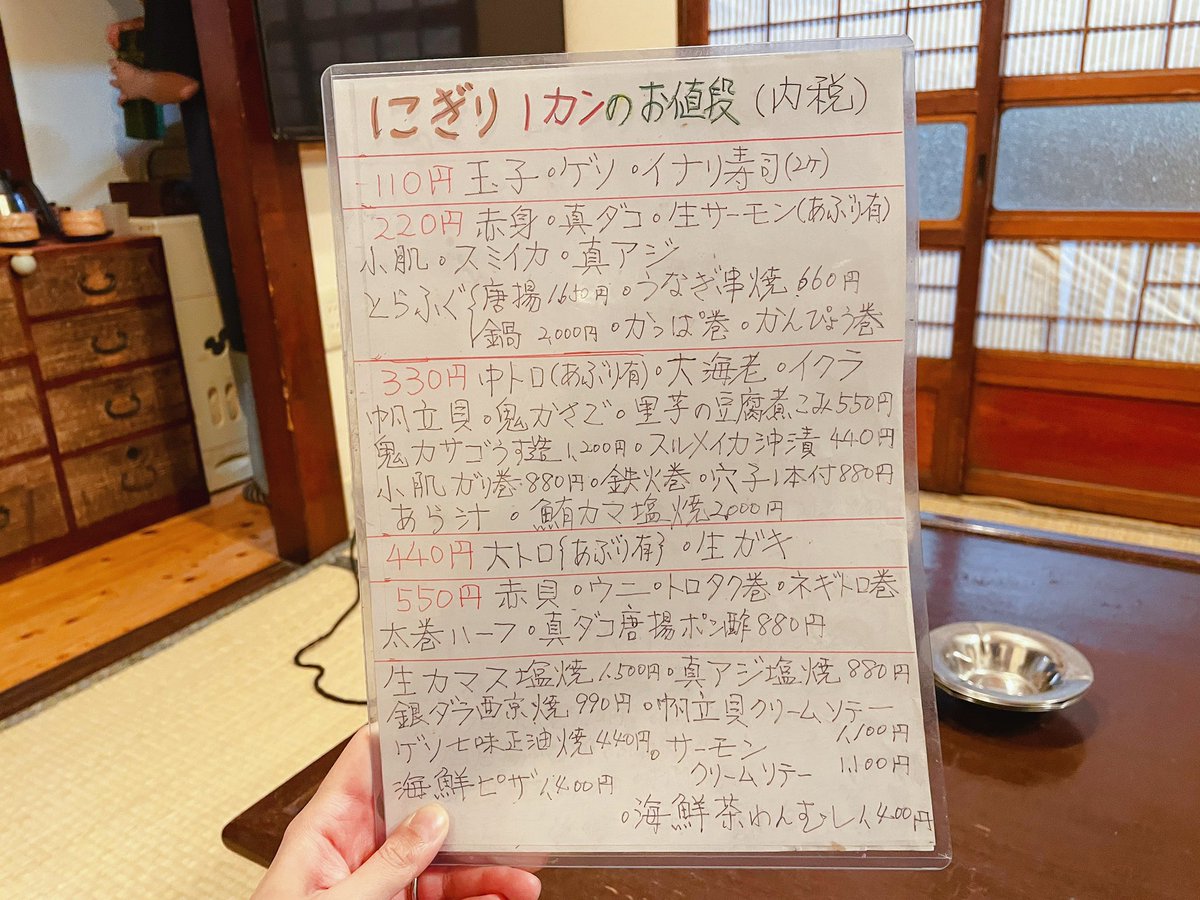 にぎり1カンのお値段(内税)
110円 玉子・ゲソ・イナリ寿司(2ヶ)
220円 赤身・真ダコ・生サーモン(あぶり有)
小肌・スミイカ・真アジ
とらふぐ{唐揚1,650円・うなぎ串焼 660円
鍋 2,000円・かっぱ巻・かんぴょう巻
330円 中トロ(あぶり有)・大海老・イクラ
帆立貝・鬼かさご・里芋の豆腐煮こみ550円
鬼カサゴうす造1,200円・スルメイカ沖漬 440円
小肌ガリ巻 880円・鉄火巻・穴子1本付880円
あら汁・鮪カマ塩焼2,000円
440円 大トロ{あぶり有}・生ガキ
550円 赤貝・ウニ・トロタク巻・ネギトロ巻
太巻ハーフ・真ダコ唐揚ポン酢880円
生カマス塩焼 1,500円・真アジ塩焼 880円
銀ダラ西京焼 990円・帆立貝クリームソテー
1,100円
ゲソ七味正油焼 440円・サーモン
クリームソテー 1,100円
海鮮ピザ 1,400円
・海鮮茶わんむし 1,400円